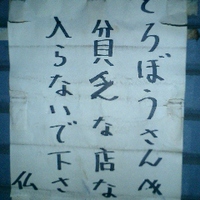 どろぼうさん
貧乏な店な
入らないで下さ
仏